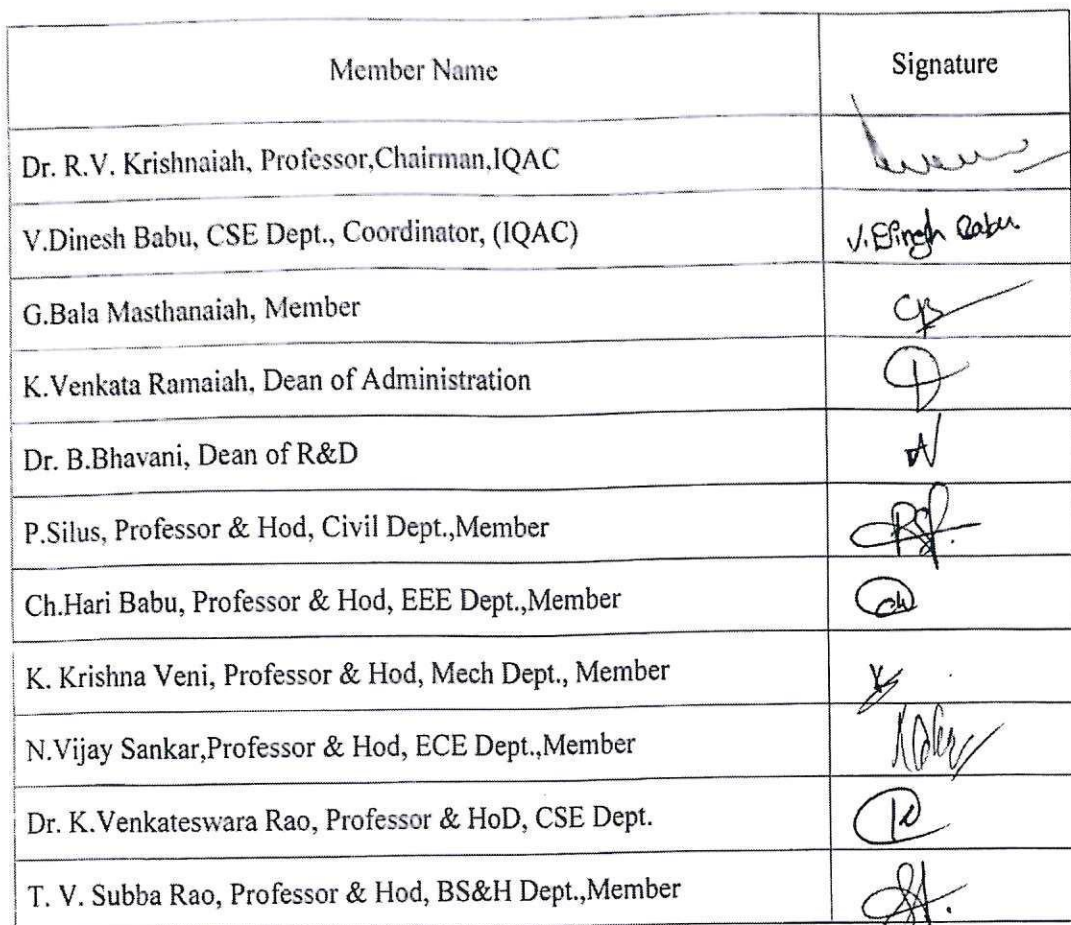 Member Name Signature
Dr. R.V. Krishnaiah, Professor,Chairman,IQAC
V.Dinesh Babu, CSE Dept., Coordinator, (IQAC) V. Babu
G.Bala Masthanaiah, Member
K.Venkata Ramaiah, Dean of Administration
Dr. B.Bhavani, Dean of R&D
P.Silus, Professor & Hod, Civil Dept.,Member
Ch.Hari Babu, Professor & Hod, EEE Dept.,Member
K. Krishna Veni, Professor & Hod, Mech Dept., Member
N.Vijay Sankar,Professor & Hod, ECE Dept.,Member
Dr. K.Venkateswara Rao, Professor & HoD, CSE Dept.
T. V. Subba Rao, Professor & Hod, BS&H Dept.,Member